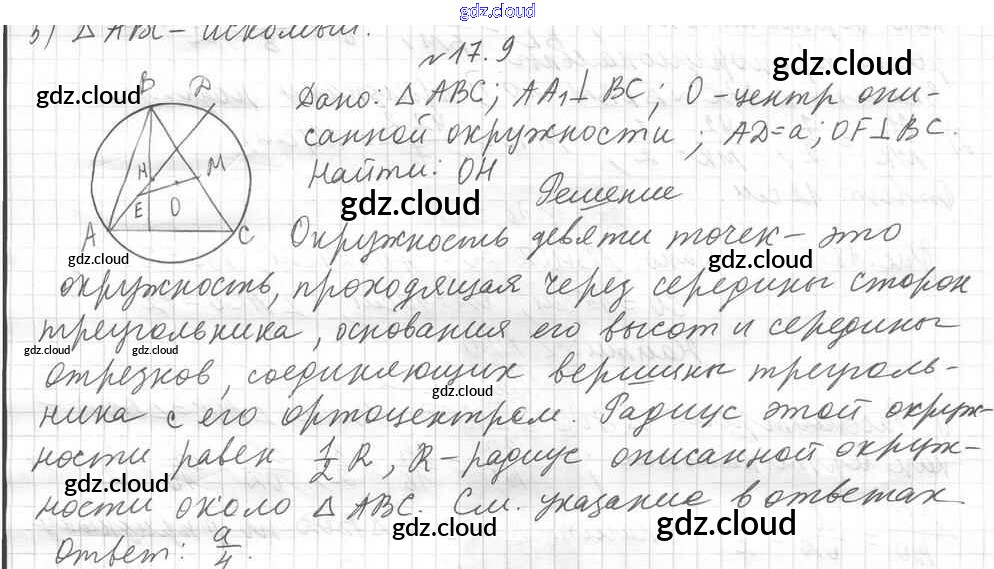 gdz.cloud
3) △ ABC - искомый.
№ 17.9
B D
gdz.cloud
Дано: △ ABC; AA₁⊥ BC; O - центр опи-
gdz.cloud
санной окружности; AD=a; OF⊥BC.
H M
Найти: OH
gdz.cloud
Решение
E O
A C
Окружность девяти точек - это
gdz.cloud gdz.cloud
окружность, проходящая через середины сторон
треугольника, основания его высот и середины
gdz.cloud gdz.cloud gdz.cloud
отрезков, соединяющих вершины треуголь-
gdz.cloud
ника с его ортоцентром. Радиус этой окруж-
ности равен 1/2 R, R - радиус описанной окруж-
gdz.cloud
ности около △ ABC. См. указание в ответах
gdz.cloud gdz.cloud
Ответ: a/4.